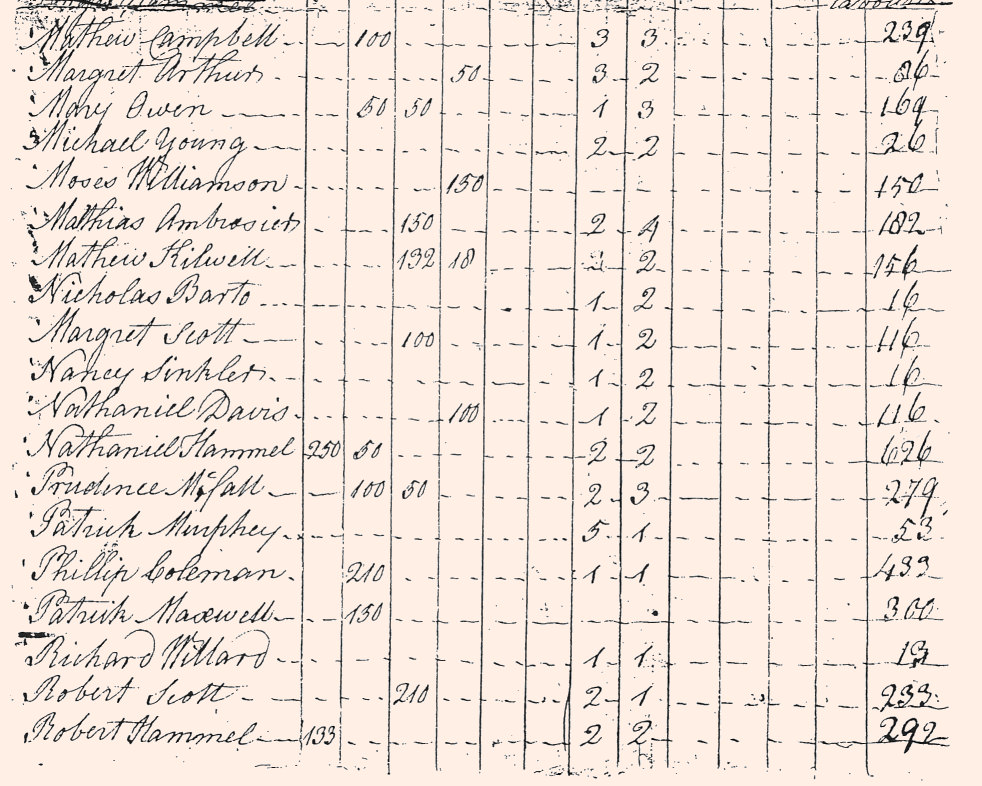 Mathew Campbell 100 3 3 239
Margret Arthur 50 3 2 86
Mary Owen 50 50 1 3 169
Michael Young 2 2 26
Moses Williamson 150 150
Mathias Ambrosier 150 2 4 182
Mathew Kilwell 132 18 2 156
Nicholas Barto 1 2 16
Margret Scott 100 1 2 116
Nancy Sinkler 1 2 16
Nathaniel Davis 100 1 2 116
Nathaniel Hammel 250 50 2 2 626
Prudence McFall 100 50 2 3 279
Patrick Murphey 5 1 53
Phillip Coleman 210 1 1 433
Patrick Maxwell 150 300
Richard Willard 1 1 13
Robert Scott 210 2 1 233
Robert Hammel 133 2 2 292